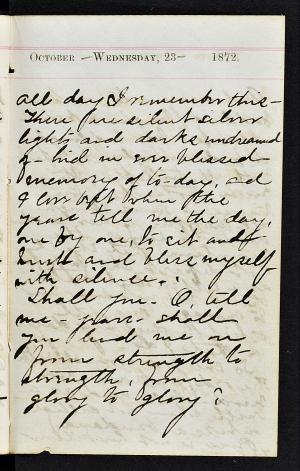 October - Wednesday, 23 - 1872.
all day I remember this -
There are silent silver
lights and darks undreamed
of - hid in our blessed
memory of to-day, and
I can wait when the
years tell me the day,
one by one, to sit and
and bless myself
with silence.
Shall you - O, tell
me - years - shall
you lead me on
from strength to
strength, from
glory to glory?